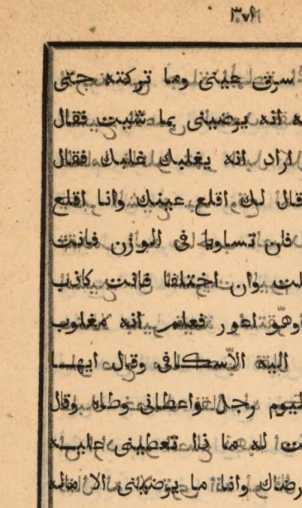 ٣٧٩
سرق جبتى وما تركته حتى
انه يرضينى بما شيت فقال
اراد انه يغلبك غلبك فقال
قال لك اقلع عينك وانا اقلع
فان تساويا فى الوزن فانت
وان اختلفا فانت كاذب
اعور فعلم انه مغلوب
اليه الاسكافى وقال ايها
اليوم رجل واعطانى وطاه وقال
له ما ذا تعطينى عليه
رضاك وانا ما يرضينى الا ماله